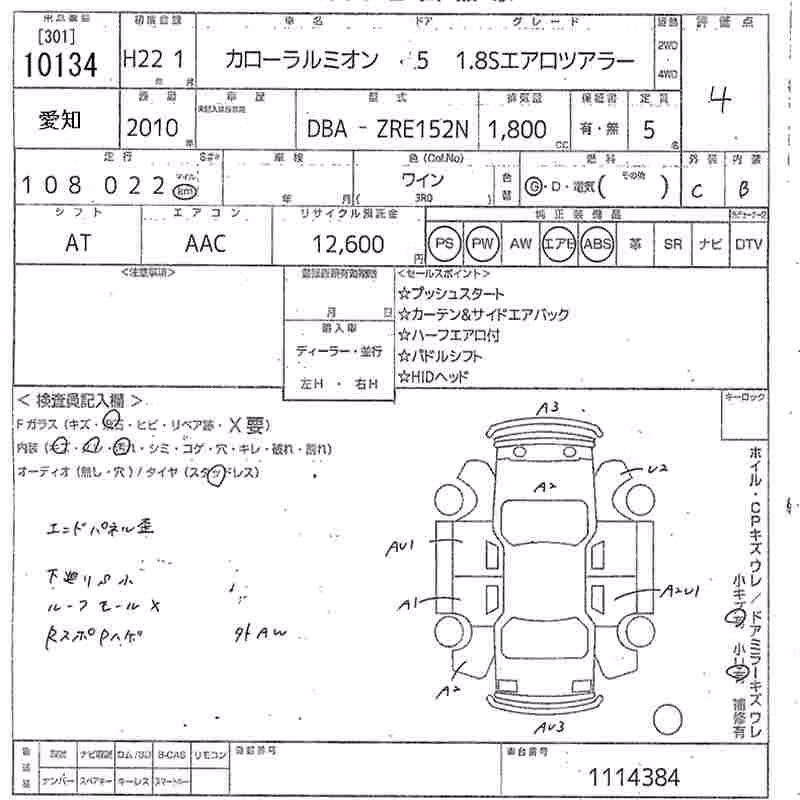 [301]
10134
初度登録
H22 1
車名
カローラルミオン
ドア
5
グレード
1.8Sエアロツアラー
2WD
4WD
評価点
4
愛知
2010
年
車歴
型式
DBA - ZRE152N
排気量
1,800
CC
保証書
有・無
定員
5
名
走行
108022
マイル
km
車検
年 月
色(Col.No)
ワイン
3R0
色替
燃料
G・D・電気( その他 )
外装
C
内装
B
シフト
AT
エアコン
AAC
リサイクル預託金
12,600
円
純正装備品
PS
PW
AW
エアB
ABS
革
SR
ナビ
DTV
<注意事項>
月 日
購入車
ディーラー・並行
左H ・ 右H
<セールスポイント>
☆プッシュスタート
☆カーテン&サイドエアバック
☆ハーフエアロ付
☆パドルシフト
☆HIDヘッド
キーロック
< 検査員記入欄 >
Fガラス (キズ・飛石・ヒビ・リペア跡・X要)
内装 (キズ・スレ・汚れ・シミ・コゲ・穴・キレ・破れ・割れ)
オーディオ (無し・穴) / タイヤ (スタッドレス)
エンドパネル歪
下廻りS小
ルーフモールX
RスポPハゲ
外AW
A3
A2
U2
AU1
A1
A2U1
A2
AU3
ホイル・CPキズウレ / ドアミラーキズウレ
小キズ有 小U有 補修有
ナビ取説
ロム/SD
B-CAS
リモコン
ナンバー
スペアキー
キーレス
スマートキー
登録番号
車台番号
1114384